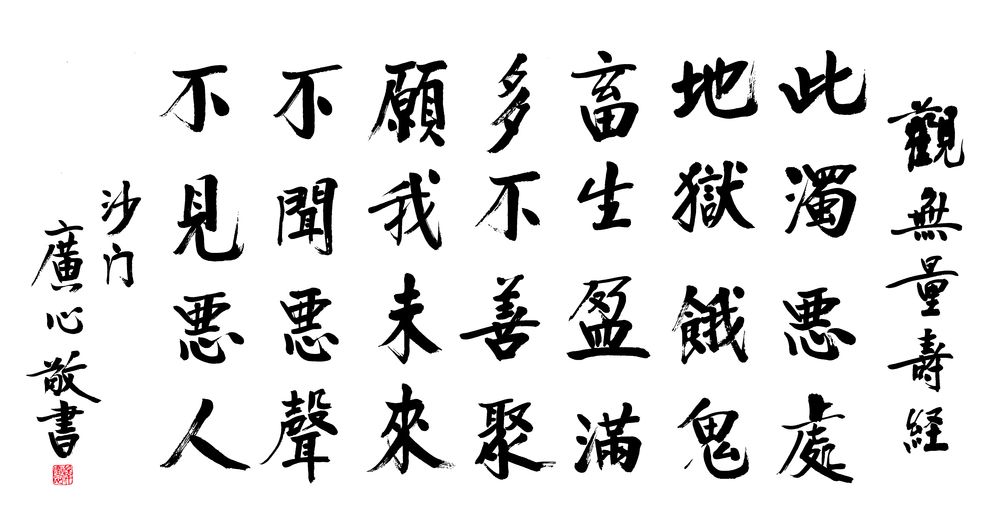 觀無量壽経
此濁悪處
地獄餓鬼
畜生盈滿
多不善聚
願我未來
不聞悪聲
不見悪人
沙门
廣心敬書